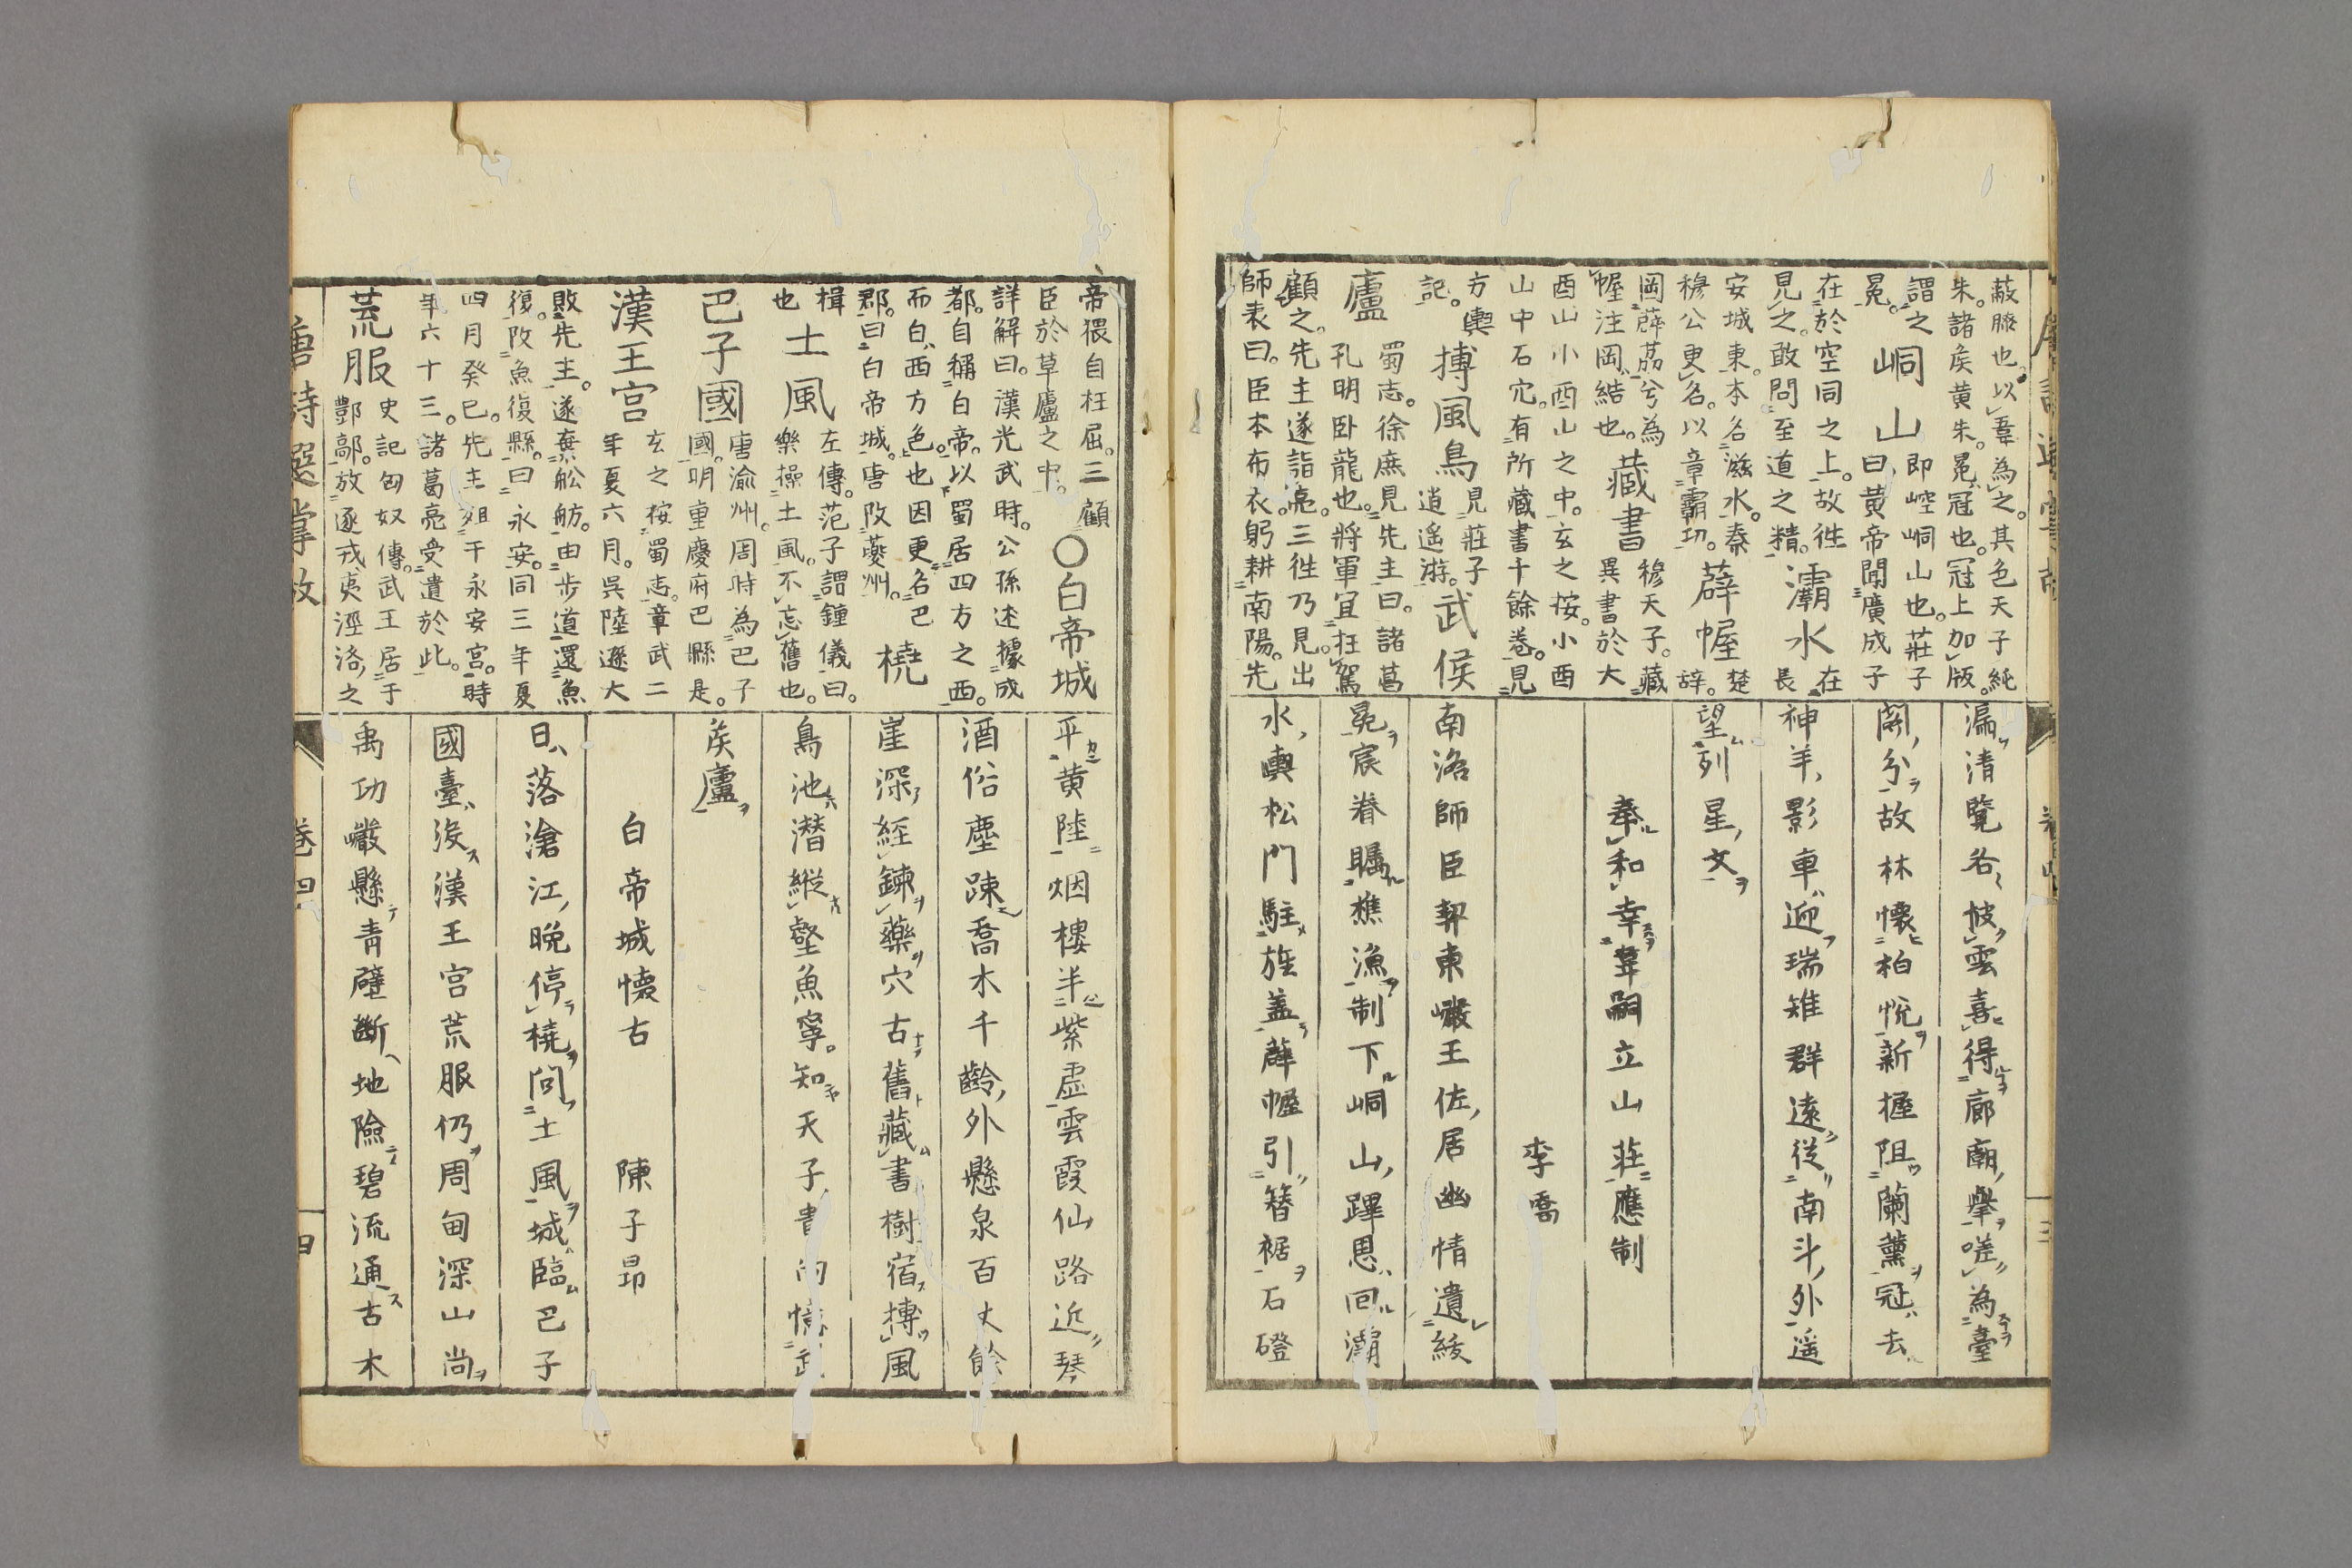 蔽膝也。以韋為之。其色天子純
朱。諸矦黄朱。冕冠也。冠上加版。
謂之
冕。
峒山
即崆峒山也。莊子
曰黄帝聞廣成子
在於空同之上。故徃
見之。敢問至道之精。
灞水
在
長
安城東。本名滋水。秦
穆公更名。以章霸功。
薜幄
楚
辞。
岡薜茘兮為
幄注岡結也。
藏書
穆天子。藏
異書於大
酉山小酉山之中。玄之按。小酉
山中石穴。有所藏書千餘巻。見
方輿
記。
搏風鳥
見莊子
逍遥游。
武侯
廬
蜀志。徐庶見先主曰。諸葛
孔明卧龍也。將軍宜枉駕
顧之。先主遂詣亮。三徃乃見。出
師表曰。臣本布衣。躬耕南陽。先
漏清覽名披雲喜得廊廟舉嗟為臺
闕分故林懷柏悦新握阻蘭薰冠去
神羊影車迎瑞雉群遠從南斗外遥
望列星文
奉和幸韋嗣立山莊應制
李嶠
南洛師臣契東巖王佐居幽情遺紱
冕宸眷矚樵漁制下峒山蹕恩回灞
水輿松門駐旌盖薜幄引簪裾石磴
帝猥自枉屈。三顧
臣於草廬之中。
○白帝城
詳解曰。漢光武時。公孫述據成
都。自稱白帝。以蜀居四方之西。
而白西方色也因更名巴
郡。曰白帝城。唐改夔州。
橈
楫
也
土風
左傳。范子謂鍾儀曰。
樂操土風。不忘舊也。
巴子國
唐渝州。周時為巴子
國。明重慶府巴縣是。
漢王宮
玄之按。蜀志。章武二
年夏六月。呉陸遜大
敗先主。遂棄舩舫。由步道還魚
復。改魚復縣。曰永安。同三年夏
四月癸巳。先主殂于永安宮。時
年六十三。諸葛亮受遺於此。
荒服
史記匈奴傳。武王居于
酆鄗。放逐戎夷涇洛之
平黄陸烟樓半紫虛雲霞仙路近琴
酒俗塵踈喬木千齡外懸泉百丈餘
崖深經鍊藥穴古舊藏書樹宿搏風
鳥池潛縱壑魚寧知天子貴尚憶武
矦廬
白帝城懷古　陳子昂
日落滄江晚停橈問土風城臨巴子
國臺没漢王宮荒服仍周甸深山尚
禹功巖懸青壁斷地險碧流通古木
唐詩選掌故
巻四
四